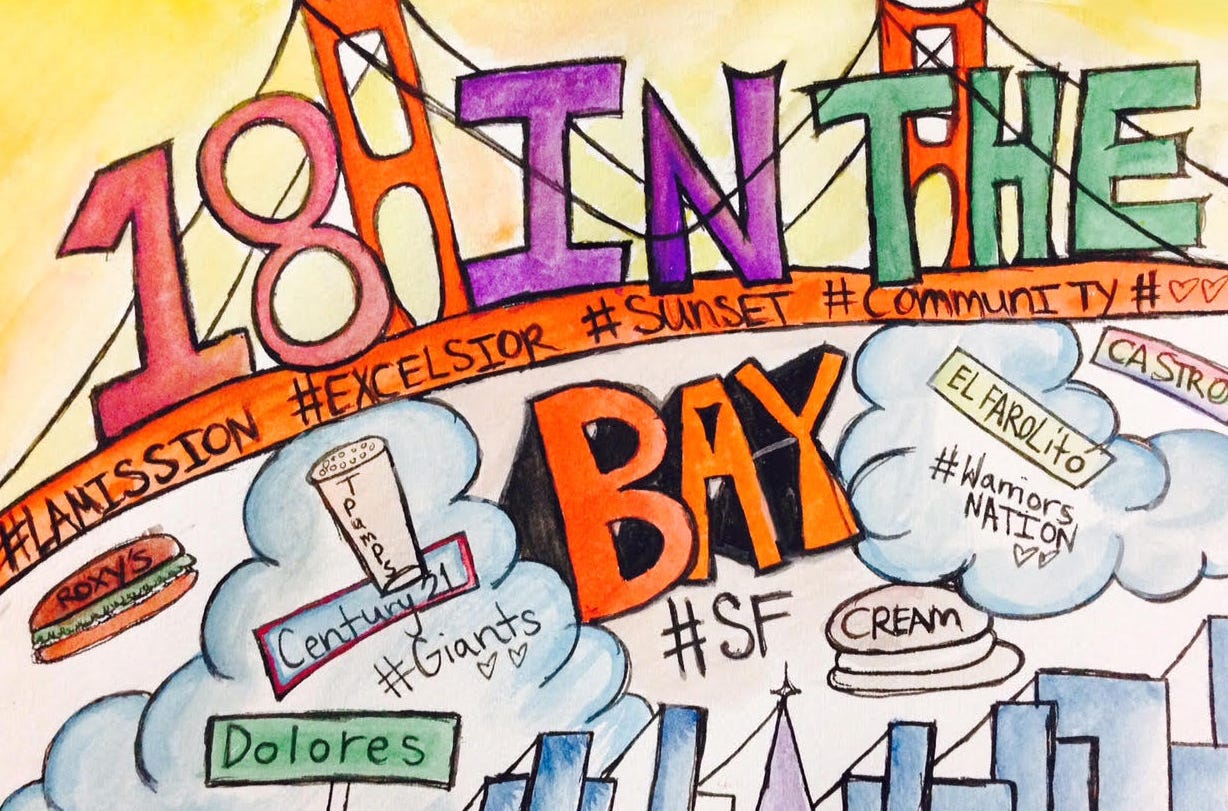 18 IN THE
BAY
#LAMISSION #EXCELSIOR #SUNSET #COMMUNITY #
ROXY'S
Tpumps
Century 21
#Giants
Dolores
#SF
CREAM
EL FAROLito
#Warriors
NATION
CASTRO